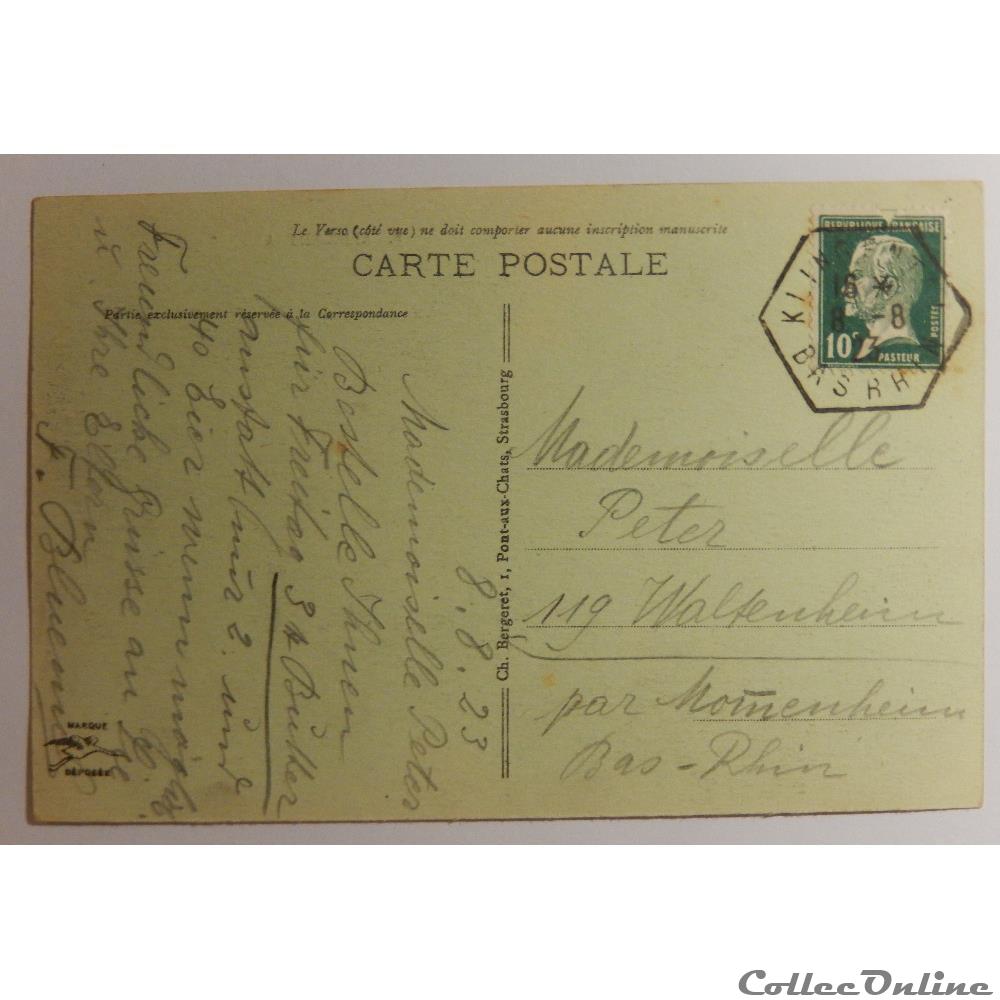 Le Verso (côté vue) ne doit comporter aucune inscription manuscrite
CARTE POSTALE
Partie exclusivement réservée à la Correspondance
8.8.23
Mademoiselle Peter
Bestelle Ihnen
für Freitag 3 ℔ Butter
anstatt nur 2. und
40 Eier wenn möglig
Freundliche Grüsse an Sie
u. Ihre Eltern
F. Bluem
MARQUE
DÉPOSÉE
Ch. Bergeret, 1, Pont-aux-Chats, Strasbourg
REPUBLIQUE FRANÇAISE
10c
POSTES
PASTEUR
BAS RHIN
8 -8
23
Mademoiselle
Peter
119 Waltenheim
par Mom̄enheim
Bas-Rhin
CollecOnline